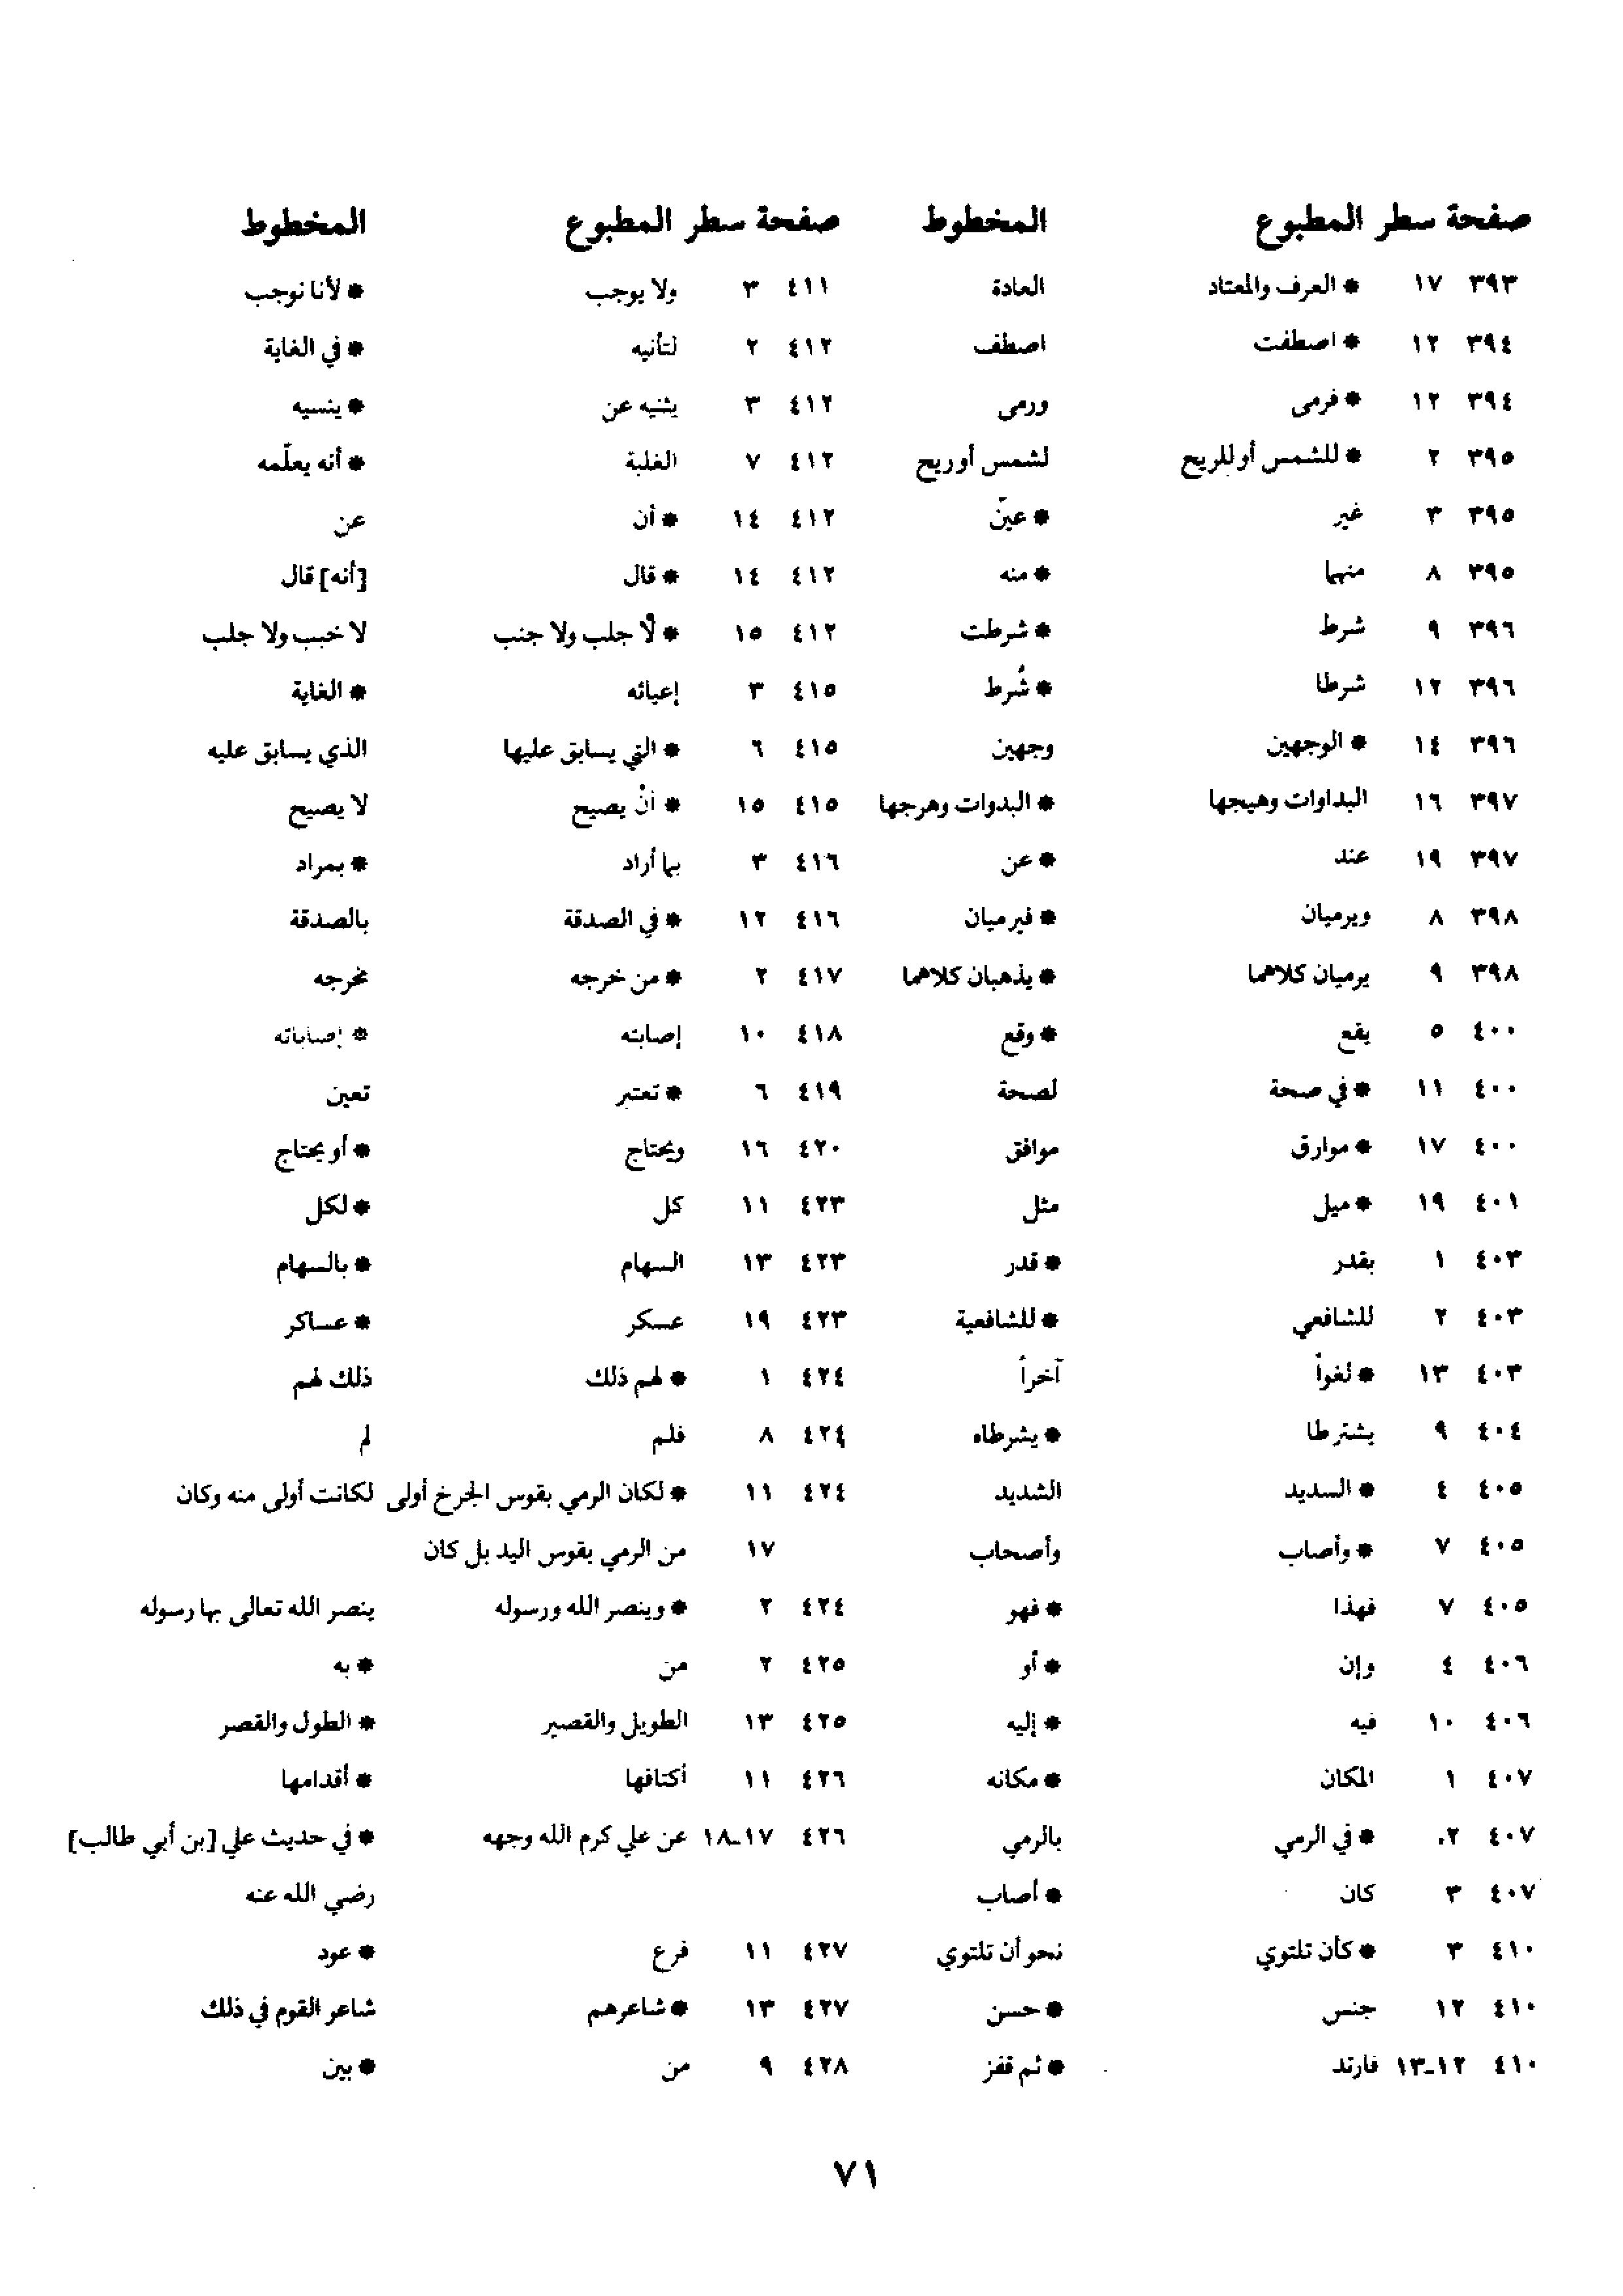 صفحة سطر المطبوع المخطوط
٣٩٣ ١٧ * العرف والمعتاد العادة
٣٩٤ ١٢ * اصطفت اصطف
٣٩٤ ١٢ * فرمى ورمى
٣٩٥ ٢ * للشمس أو للريح لشمس أو ريح
٣٩٥ ٣ غير * عينّ
٣٩٥ ٨ منهما * منه
٣٩٦ ٩ شرط * شرطت
٣٩٦ ١٢ شرطا * شُرط
٣٩٦ ١٤ * الوجهين وجهين
٣٩٧ ١٦ البداوات وهيجها * البدوات وهرجها
٣٩٧ ١٩ عند * عن
٣٩٨ ٨ ويرميان * فيرميان
٣٩٨ ٩ يرميان كلاهما * يذهبان كلاهما
٤٠٠ ٥ يقع * وقع
٤٠٠ ١١ * في صحة لصحة
٤٠٠ ١٧ * موارق موافق
٤٠١ ١٩ * ميل مثل
٤٠٣ ١ بقدر * قدر
٤٠٣ ٢ للشافعي * للشافعية
٤٠٣ ١٣ * لغواً آخراً
٤٠٤ ٩ يشترطا * يشرطاه
٤٠٥ ٤ * السديد الشديد
٤٠٥ ٧ * وأصاب وأصحاب
٤٠٥ ٧ فهذا * فهو
٤٠٦ ٤ وإن * أو
٤٠٦ ١٠ فيه * إليه
٤٠٧ ١ المكان * مكانه
٤٠٧ ٢. * في الرمي بالرمي
٤٠٧ ٣ كان * أصاب
٤١٠ ٣ * كأن تلتوي نحو أن تلتوي
٤١٠ ١٢ جنس * حسن
٤١٠ ١٢ـ١٣ فارتد * ثم قفز
صفحة سطر المطبوع المخطوط
٤١١ ٣ ولا يوجب * لأنا نوجب
٤١٢ ٢ لتأنيه * في الغاية
٤١٢ ٣ يثنيه عن * ينسيه
٤١٢ ٧ الغلبة * أنه يعلّمه
٤١٢ ١٤ * أن عن
٤١٢ ١٤ * قال [أنه] قال
٤١٢ ١٥ * لا جلب ولا جنب لا خبب ولا جلب
٤١٥ ٣ إعيائه * الغاية
٤١٥ ٦ * التي يسابق عليها الذي يسابق عليه
٤١٥ ١٥ * أنْ يصيح لا يصيح
٤١٦ ٣ بما أراد * بمراد
٤١٦ ١٢ * في الصدقة بالصدقة
٤١٧ ٢ * من خرجه مخرجه
٤١٨ ١٠ إصابته * إصاباته
٤١٩ ٦ * تعتبر تعين
٤٢٠ ١٦ ويحتاج * أو يحتاج
٤٢٣ ١١ كل * لكل
٤٢٣ ١٣ السهام * بالسهام
٤٢٣ ١٩ عسكر * عساكر
٤٢٤ ١ * لهم ذلك ذلك لهم
٤٢٤ ٨ فلم لم
٤٢٤ ١١ * لكان الرمي بقوس الجرخ أولى لكانت أولى منه وكان
١٧ من الرمي بقوس اليد بل كان
٤٢٤ ٢ * وينصر الله ورسوله ينصر الله تعالى بها رسوله
٤٢٥ ٢ من * به
٤٢٥ ١٣ الطويل والقصير * الطول والقصر
٤٢٦ ١١ أكتافها * أقدامها
٤٢٦ ١٧ـ١٨ عن علي كرم الله وجهه * في حديث علي [بن أبي طالب]
رضي الله عنه
٤٢٧ ١١ فرع * عود
٤٢٧ ١٣ * شاعرهم شاعر القوم في ذلك
٤٢٨ ٩ من * بين
٧١